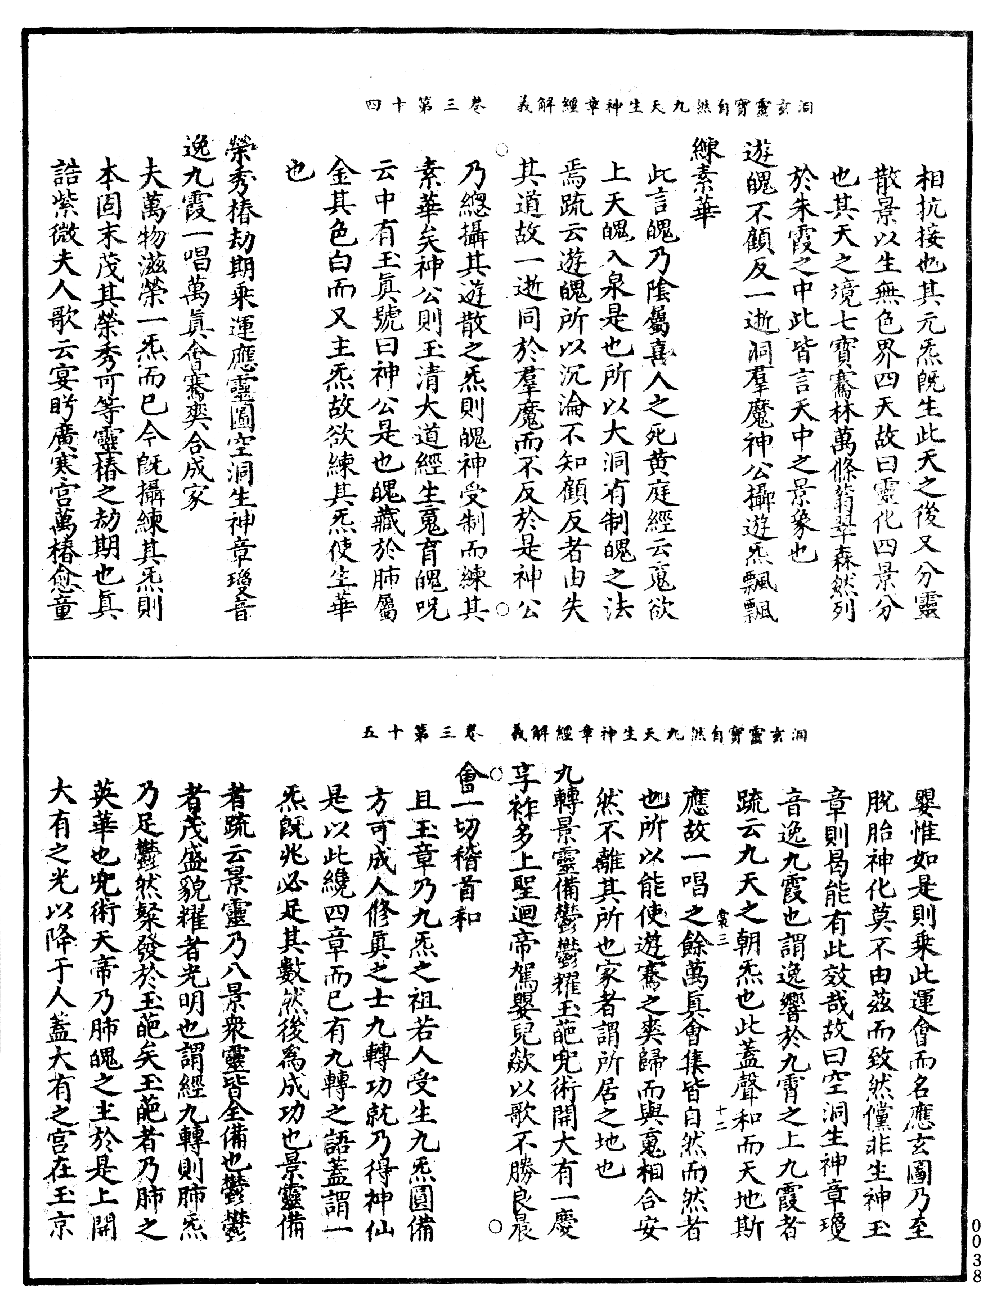 洞玄靈寶自然九天生神章經解義　卷三第十四
相抗接也其元炁旣生此天之後又分靈
散景以生無色界四天故曰靈化四景分
也其天之境七寶騫林萬條翡翠森然列
於朱霞之中此皆言天中之景象也
遊魄不顧反一逝洞羣魔神公攝遊炁飄飄
練素華
此言魄乃陰屬喜人之死黃庭經云䰟欲
上天魄入泉是也所以大洞有制魄之法
焉疏云遊魄所以沉淪不知顧反者由失
其道故一逝同於羣魔而不反於是神公
乃總攝其遊散之炁則魄神受制而練其
素華矣神公則玉清大道經生䰟育魄呪
云中有玉眞號曰神公是也魄藏於肺屬
金其色白而又主炁故欲練其炁使生華
也
榮秀椿劫期乘運應靈圖空洞生神章瓊音
逸九霞一唱萬眞會騫爽合成家
夫萬物滋榮一炁而已今旣攝練其炁則
本固末茂其榮秀可等靈椿之劫期也眞
誥紫微夫人歌云宴眄廣寒宫萬椿愈童
洞玄靈寶自然九天生神章經解義　卷三第十五
嬰惟如是則乘此運會而名應玄圖乃至
脫胎神化莫不由兹而致然儻非生神玉
章則曷能有此效哉故曰空洞生神章瓊
音逸九霞也謂逸響於九霄之上九霞者
疏云九天之朝炁也此蓋聲和而天地斯
裳三　十二
應故一唱之餘萬眞會集皆自然而然者
也所以能使遊騫之爽歸而與䰟相合安
然不離其所也家者謂所居之地也
九轉景靈備鬱鬱耀玉葩兜術開大有一慶
享祚多上聖迴帝駕嬰兒歘以歌不勝良晨
會一切稽首和
且玉章乃九炁之祖若人受生九炁圓備
方可成人修眞之士九轉功就乃得神仙
是以此纔四章而已有九轉之語蓋謂一
炁旣兆必足其數然後為成功也景靈備
者疏云景靈乃八景衆靈皆全備也鬱鬱
者茂盛貌耀者光明也謂經九轉則肺炁
乃足鬱然粲發於玉葩矣玉葩者乃肺之
英華也兜術天帝乃肺魄之主於是上開
大有之光以降于人蓋大有之宫在玉京
0038